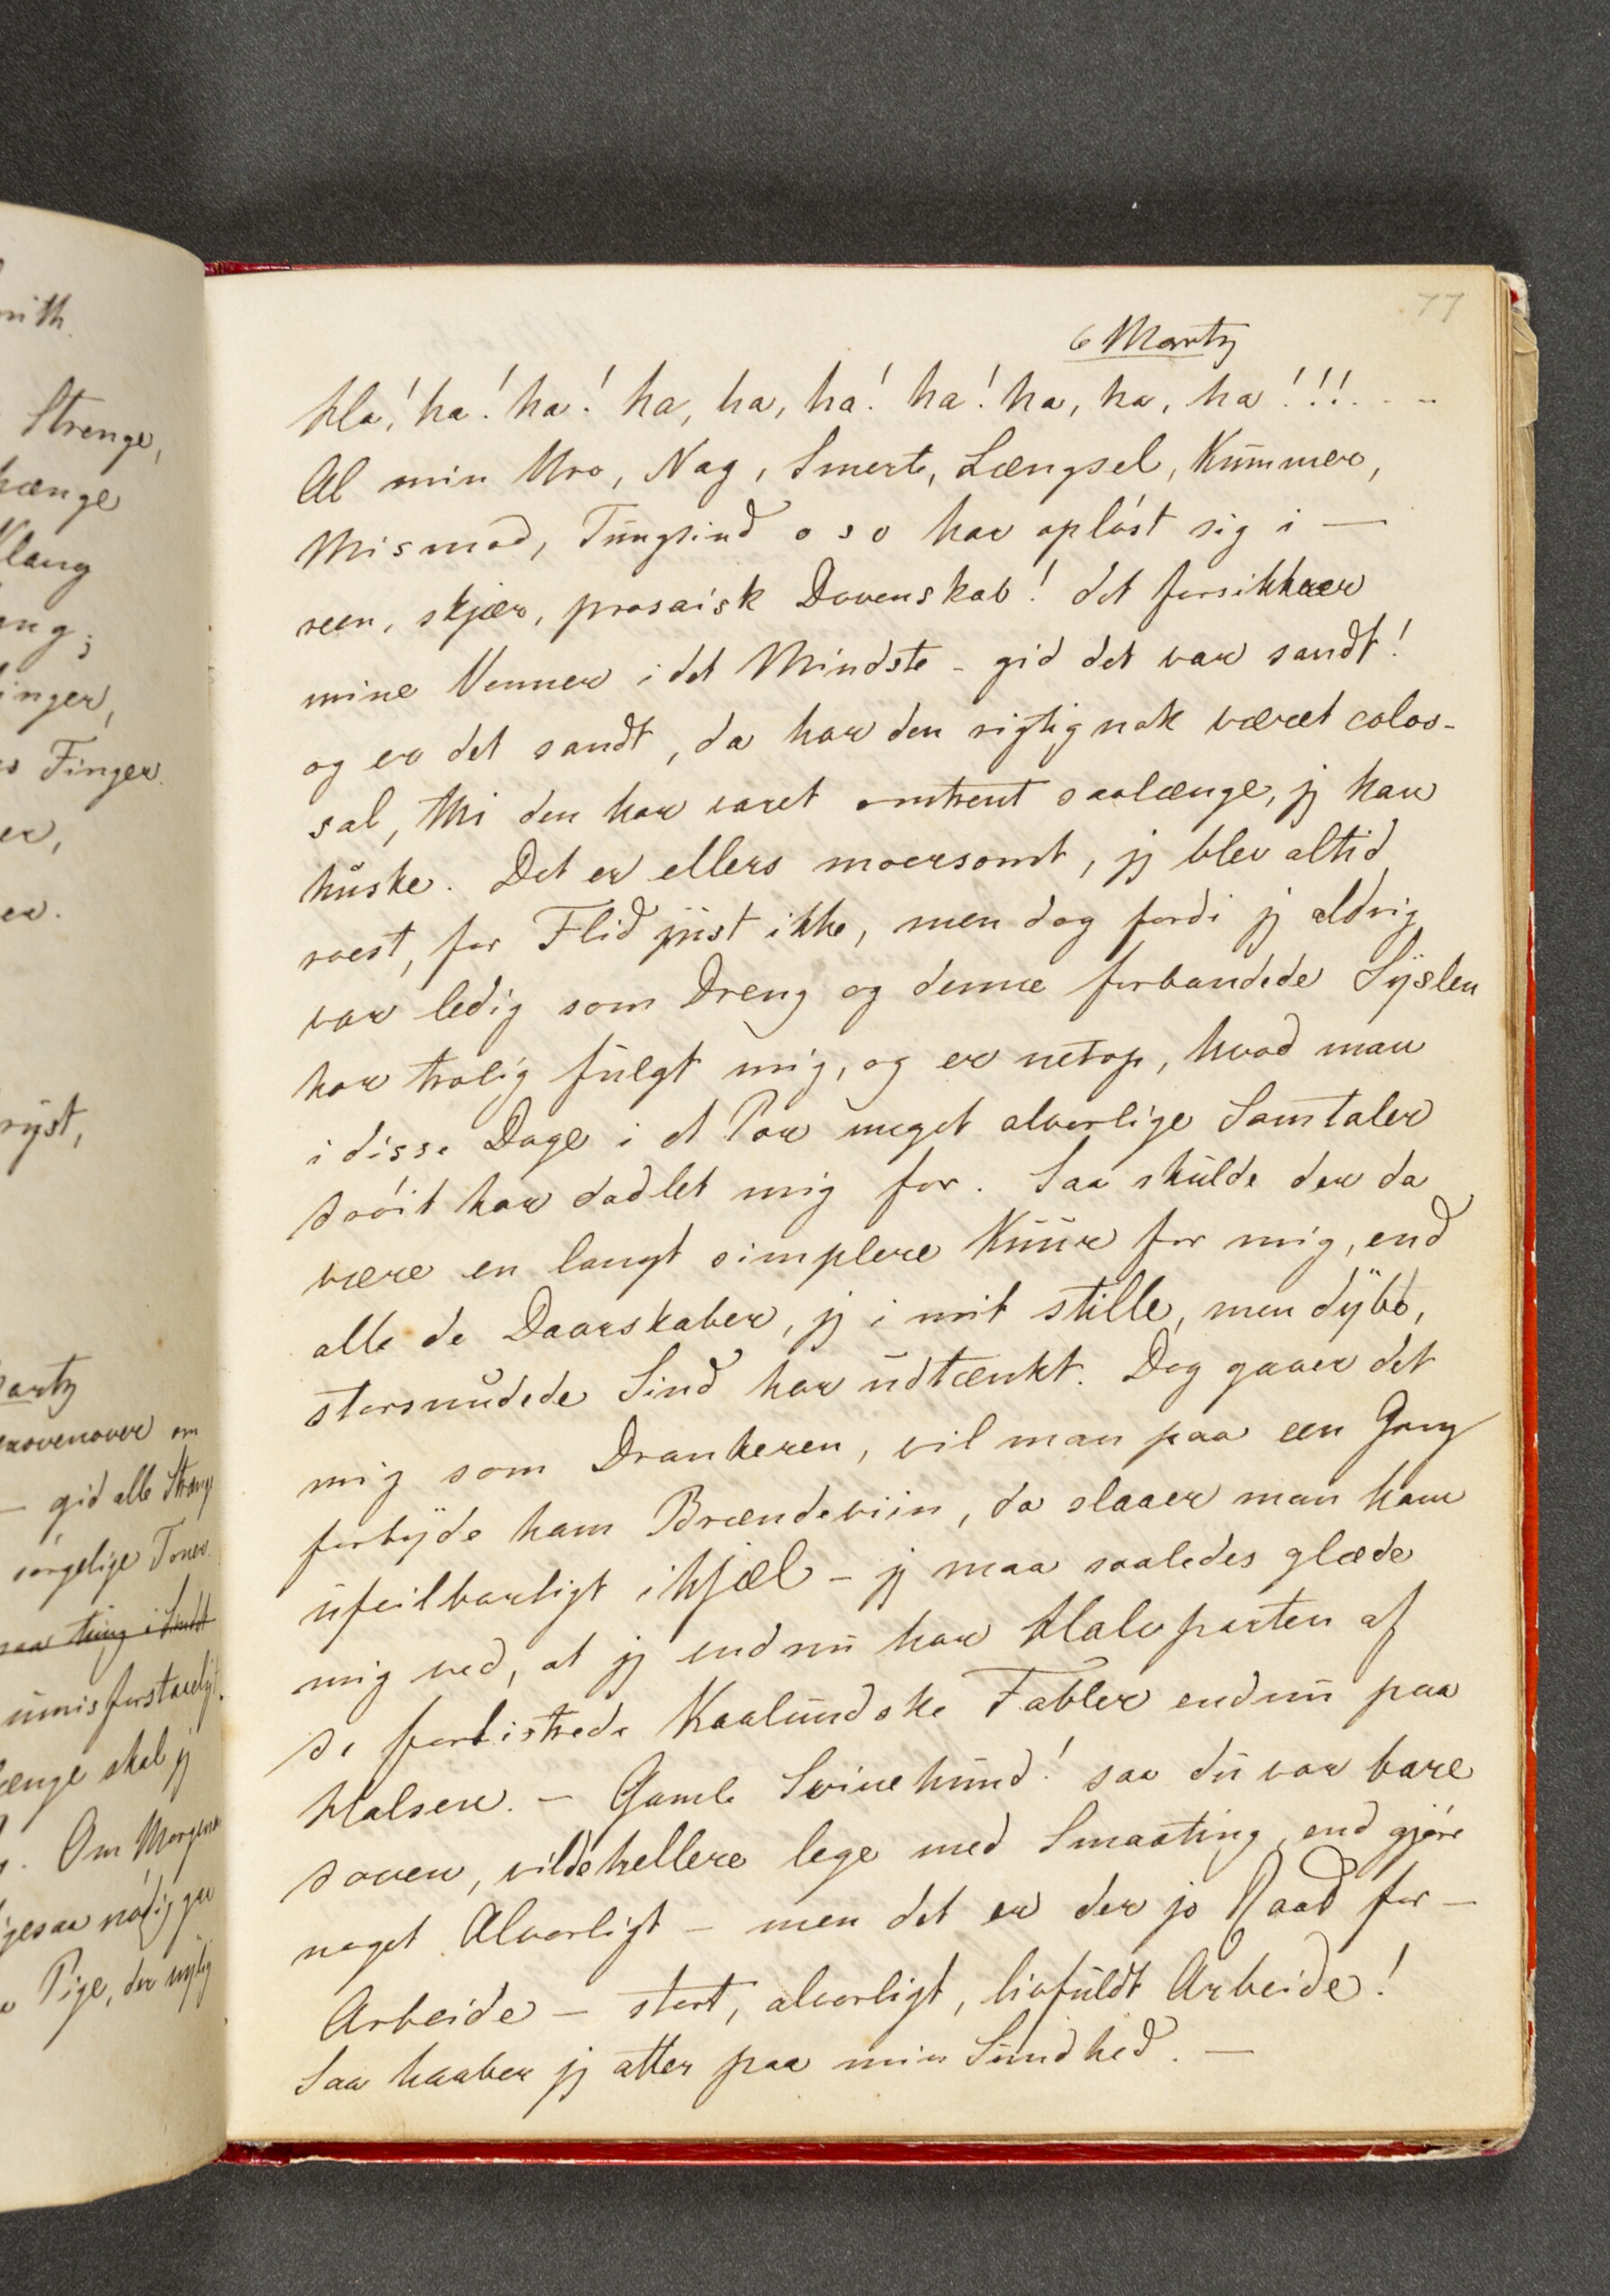 nith.
Strenge,
hænge
Klang
ang;
inger,
Finger.
er,
er.
ryst,
Martz
gid alle Strænge
sørgelige Toner.
umisforstaaeligt.
længe skal jj
Om Morgenen
Pige, der nylig
77
6 Martz
Ha! ha! ha! ha, ha, ha! ha! ha, ha, ha!!!. . --
Al min Uro, Nag, Smerte, Længsel, Kummer,
Mismod, Tungsind o s v har opløst sig i —
reen, skjær, prosaisk Dovenskab! det forsikkrer
mine Venner i det Mindste - gid det var sandt!
og er det sandt, da har den rigtig nok været colos-
sal, thi den har varet omtrent saalænge, jj kan
huske. Det er ellers moersomt, jj blev altid
roest, for Flid just ikke, men dog fordi jj aldrig
var ledig som Dreng og denne forbandede Syslen
har trolig fulgt mig, og er netop, hvad man
i disse Dage i et Par meget alvorlige Samtaler
drøit har dadlet mig for. Saa skulde der da
være en langt simplere Kuur for mig, end
alle de Daarskaber, jj i mit stille, men dybe,
storsnudede Sind har udtænkt. Dog gaaer det
mig som Drankeren, vil man paa een Gang
forbyde ham Brændeviin, da slaaer man ham
ufeilbarligt ihjæl - jj maa saaledes glæde
mig ved, at jj endnu har Halvparten af
de forbistrede Kaalundske Fabler endnu paa
Halsen. - Gamle Svinehund! saa du var bare
doven, vilde hellere lege med Smaating, end gjøre
noget Alvorligt - men det er der jo Raad for -
Arbeide - stort, alvorligt, livfuldt Arbeide!
Saa haaber jj atter paa min Sundhed. —